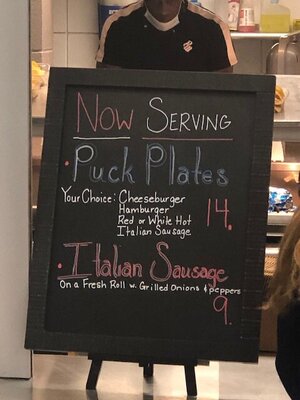 Now Serving
• Puck Plates
Your Choice: Cheeseburger
Hamburger
Red or White Hot
Italian Sausage
14.
• Italian Sausage
On a Fresh Roll w. Grilled Onions & peppers
9.